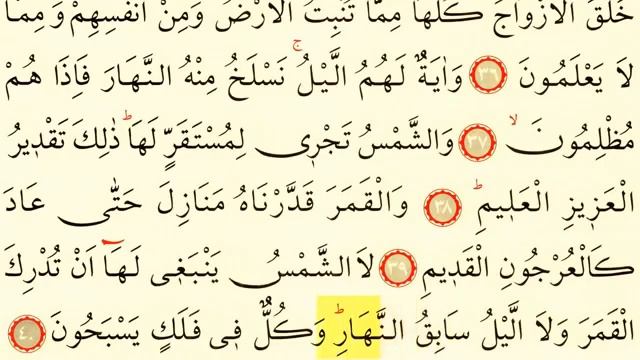 خَلَقَ الْاَزْوَاجَ كُلَّهَا مِمَّا تُنْبِتُ الْاَرْضُ وَمِنْ اَنْفُسِهِمْ وَمِمَّا
لَا يَعْلَمُونَ ﴿٣٦﴾ وَاٰيَةٌ لَهُمُ الَّيْلُۚ نَسْلَخُ مِنْهُ النَّهَارَ فَاِذَا هُمْ
مُظْلِمُونَۙ ﴿٣٧﴾ وَالشَّمْسُ تَجْرٖى لِمُسْتَقَرٍّ لَهَاؕ ذٰلِكَ تَقْدٖيرُ
الْعَزٖيزِ الْعَلٖيمِؕ ﴿٣٨﴾ وَالْقَمَرَ قَدَّرْنَاهُ مَنَازِلَ حَتّٰى عَادَ
كَالْعُرْجُونِ الْقَدٖيمِ ﴿٣٩﴾ لَا الشَّمْسُ يَنْبَغٖى لَهَٓا اَنْ تُدْرِكَ
الْقَمَرَ وَلَا الَّيْلُ سَابِقُ النَّهَارِؕ وَكُلٌّ فٖى فَلَكٍ يَسْبَحُونَ ﴿٤٠﴾